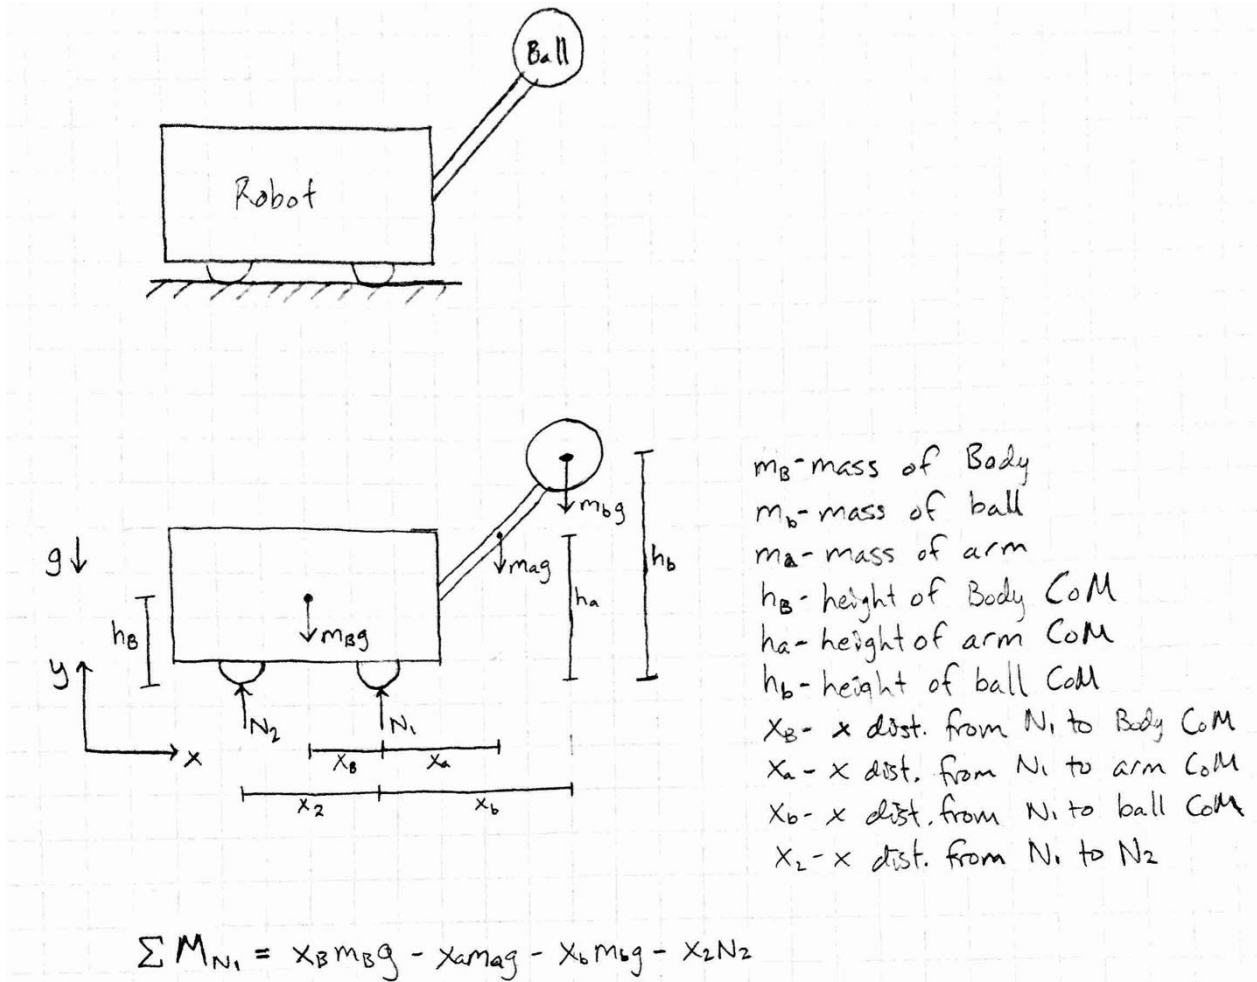 Ball
Robot
m_b g
m_a g
g
h_B
m_B g
h_a
h_b
y
x
N₂
N₁
x_B
x_a
x₂
x_b
m_B - mass of Body
m_b - mass of ball
m_a - mass of arm
h_B - height of Body CoM
h_a - height of arm CoM
h_b - height of ball CoM
x_B - x dist. from N₁ to Body CoM
x_a - x dist. from N₁ to arm CoM
x_b - x dist. from N₁ to ball CoM
x₂ - x dist. from N₁ to N₂
Σ M_N₁ = x_B m_B g - x_a m_a g - x_b m_b g - x₂ N₂